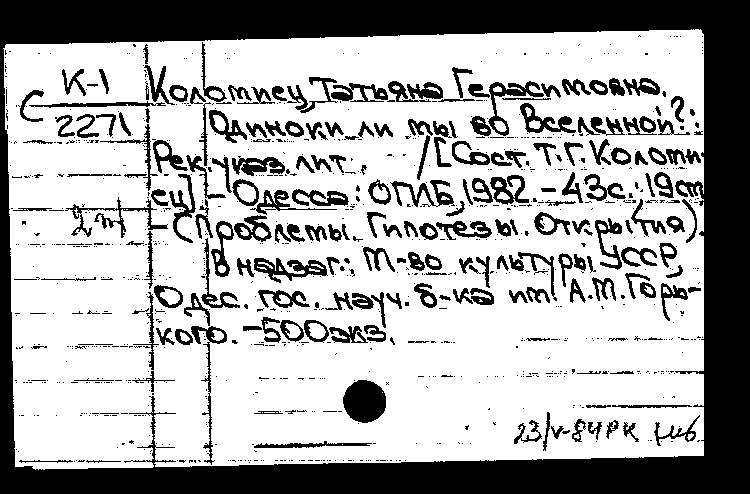 К-1
С 2271
Коломиец, Татьяна Герасимовна.
Одиноки ли мы во Вселенной?:
Рек. указ. лит. /[Сост. Т.Г. Коломи-
ец]. - Одесса: ОГНБ, 1982. - 43с.; 19см
- (Проблемы. Гипотезы. Открытия).
В надзаг.: М-во культуры УССР,
Одес. гос. науч. б-ка им. А.М. Горь-
кого. - 500экз.